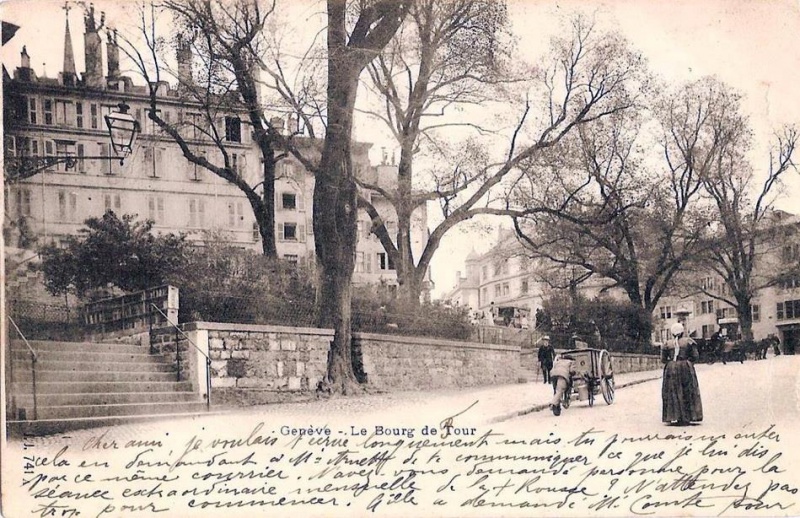 Genève - Le Bourg de Four
J.J. 741
cher ami, je voulais t'écrire longuement mais tu pourrais m'en
cela en demandant à Mr de te communiquer ce que je lui dis
par ce même courrier. Navez vous demandé personne pour la
séance extraordinaire mensuelle de la + Rouge? N'attendez pas
trop pour commencer. Gille a demandé M. Comte pour